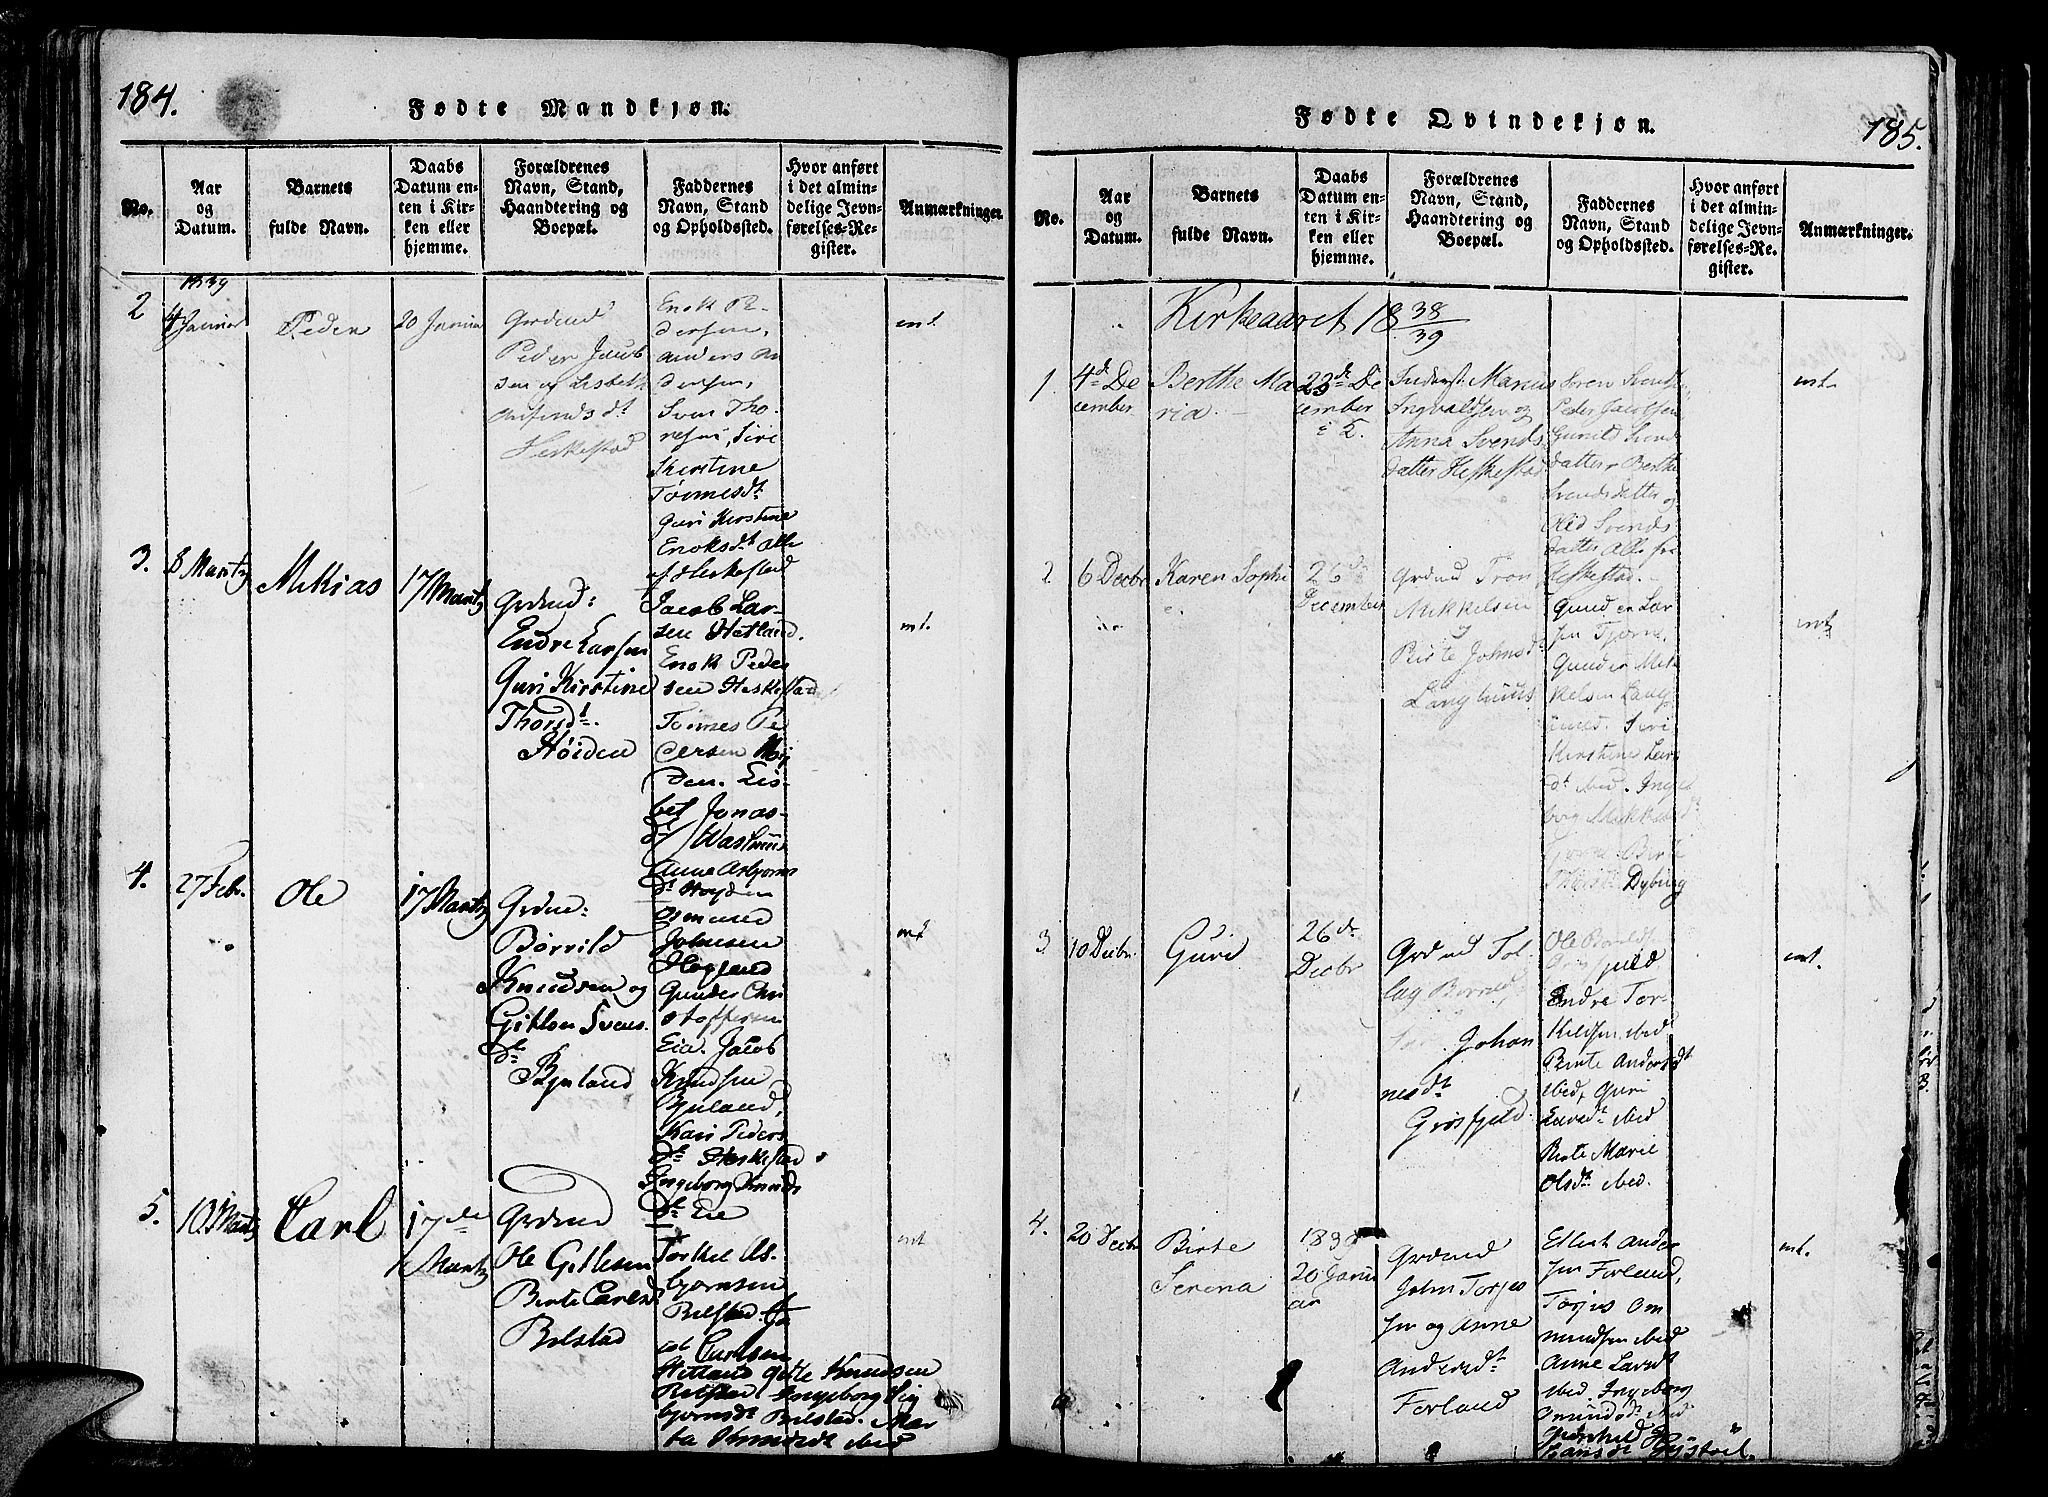 184.
Fødte Mandkjøn.
No.
Aar
og
Datum.
Barnets
fulde Navn.
Daabs
Datum en-
ten i Kir-
ken eller
hjemme.
Forældrenes
Navn, Stand,
Haandtering og
Boepæl.
Faddernes
Navn, Stand
og Opholdssted.
Hvor anført
i det almin-
delige Jevn-
førelses-Re-
gister.
Anmærkninger.
1839
2
4 Januar
Peder
20 Januar
Grdmd
Peder Jacob
sen og Lisbeth
dt
Heskestad
Enok Pe-
dersen,
Anders An
dersen,
Sven Tho-
resen, Siri
Kirstine
Tønnesdt
Guri Kirstine
Enoksdt Alle
af Heskestad
mt.
3.
8 Martz
Mikias
17 Martz
Grdmd:
Endre Larsen
Guri Kirstine
Thorsdt.
Høiden
Jacob Lar-
sen Hetland.
Enok Peder
sen Heskestad
Tønnes Pe
dersen Høj
den. Lis-
bet Jonas-
dt
Anne Asbjorns
dt Højden
mt.
4.
27 Febr.
Ole
17 Martz
Grdm:
Børvild
Knudsen og
Gitlou Svens
dt
Bjuland
Osmund
Johnsen
Gunder Chri
stoffersen
Eia. Jacob
Knudsen
Bjuland,
Kari Peders
dt Heskestad
Ingeborg Knuds
dt Eie
mt
5.
10 Martz
Carl
17 de
Martz
Grdmd
Ole Gitlesen
Birte Carlsd
Bilstad
Torkel As-
bjørnsen
Bilstad. Ja
cob Carlsen
Hetland Gitle Knudsen
Bilstad Ingeborg Sig
bjørnsdt Bilstad. Mar
ta Knudsdt ibid
mt
185.
Fødte Qvindekjøn.
No.
Aar
og
Datum.
Barnets
fulde Navn.
Daabs
Datum en-
ten i Kir-
ken eller
hjemme.
Forældrenes
Navn, Stand,
Haandtering og
Boepæl.
Faddernes
Navn, Stand
og Opholdssted.
Hvor anført
i det almin-
delige Jevn-
førelses-Re-
gister.
Anmærkninger.
Kirkeaaret 18 38/39
1.
4d De
cember
Berthe Ma
ria.
23de De
cember
i K.
Marius
Ingvaldsen og
Anna Svends
datter Heskestad
Søren Svends
Peder Jacobsen
Gunild Svend
datter Berthe
Svendsdatter og
Svends
datter Alle fra
Heskestad.
mt.
2
6 Decbr
Karen Sophi
e.
26 de
December
Grdmd Tron
Mikkelsen
og
Birte Johnsdt
Langhuus
Gunder Lar
sen Tjørn,
Gunder Mik
kelsen Lang
huus. Siri
Kirstine Lars
dt ibid. Inge
borg Mikkelsdt
Birte
Dybing
mt
3
10 Decbr.
Guri
26 de
Decbr
Grdmd Tol
lag
Johan
nesdt
Grøsfjeld
Ole
Grøsfjeld
Endre Tor-
kildsen ibid
Birte Andersdt
ibid, Guri
dt ibid
Birte Marie
Olsdt ibid.
mt.
4.
20 Decbr
Birte
Serena
1839
20 Janu
ar
Grdmd
John Torjes
sen og Anne
Andersdt
Førland
Ellert Ander
sen Førland,
Torjus Om
mundsen ibid
Anne Larsdt
ibid. Ingeborg
Omundsdt ibid
Hansdt
mt.